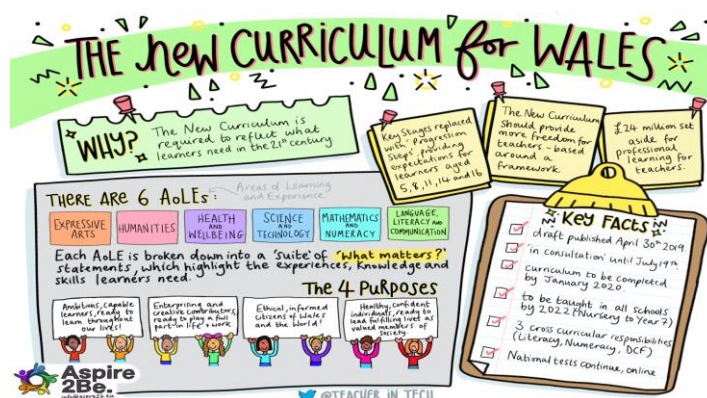 THE new CURRICULUM for WALES
WHY?
The New Curriculum is
required to reflect what
learners need in the 21st century.
Key Stages replaced
with 'Progression
Steps', providing
expectations for
learners aged
5, 8, 11, 14 and 16
The New Curriculum
should provide
more freedom for
teachers - based
around a
framework.
£24 million set
aside for
professional
learning for
teachers.
THERE ARE 6 AoLEs:
Areas of Learning
and Experience
EXPRESSIVE
ARTS
HUMANITIES
HEALTH
AND
WELLBEING
SCIENCE
AND
TECHNOLOGY
MATHEMATICS
AND
NUMERACY
LANGUAGE,
LITERACY AND
COMMUNICATION
Each AoLE is broken down into a 'suite' of 'What matters?'
statements, which highlight the experiences, knowledge and
skills learners need.
The 4 PURPOSES
Ambitious, capable
learners, ready to
learn throughout
our lives!
Enterprising and
creative contributors,
ready to play a full
part in life + work
Ethical, informed
citizens of Wales
and the World!
Healthy, confident
individuals, ready to
lead fulfilling lives as
valued members of
society.
KEY FACTS
draft published April 30th 2019.
'in consultation' until July 19th.
curriculum to be completed
by January 2020.
to be taught in all schools
by 2022 (Nursery to Year 7)
3 cross curricular responsibilities
(Literacy, Numeracy, DCF)
National tests continue, online
Aspire
2Be.
@TEACHER_IN_TECH